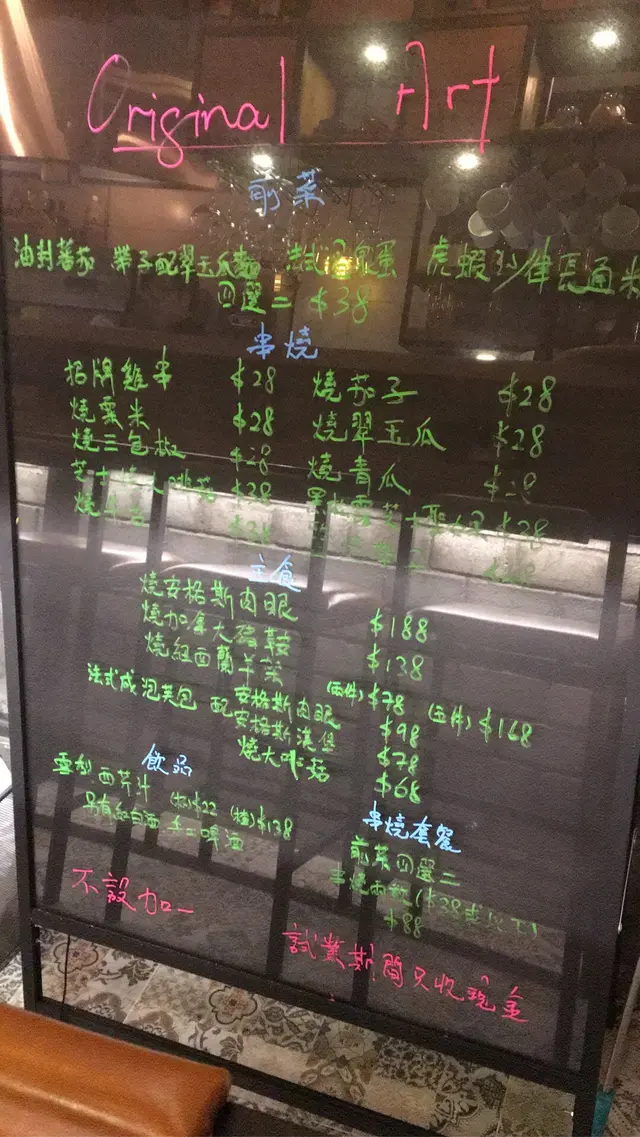 Original Art
前菜
油封蕃茄 帶子配翠玉瓜麵 法式溫泉蛋 虎蝦沙律長通粉
四選二 $38
串燒
招牌雞串 $28 燒茄子 $28
燒粟米 $28 燒翠玉瓜 $28
燒三色椒 $28 燒青瓜 $28
芝士燒大啡菇 $38 $38
燒牛舌 $38
主食
燒安格斯肉眼 $188
燒加拿大豬鞍 $138
燒紐西蘭羊架 (兩件) $78 (五件) $168
法式咸泡芙包 配 安格斯肉眼 $98
安格斯漢堡 $78
燒大啡菇 $68
飲品
雪梨西芹汁 (杯) $22 (樽) $138
另有紅白酒 手工啤酒
串燒套餐
前菜四選二
串燒兩款 ($38或以下)
$88
不設加一
試業期間只收現金